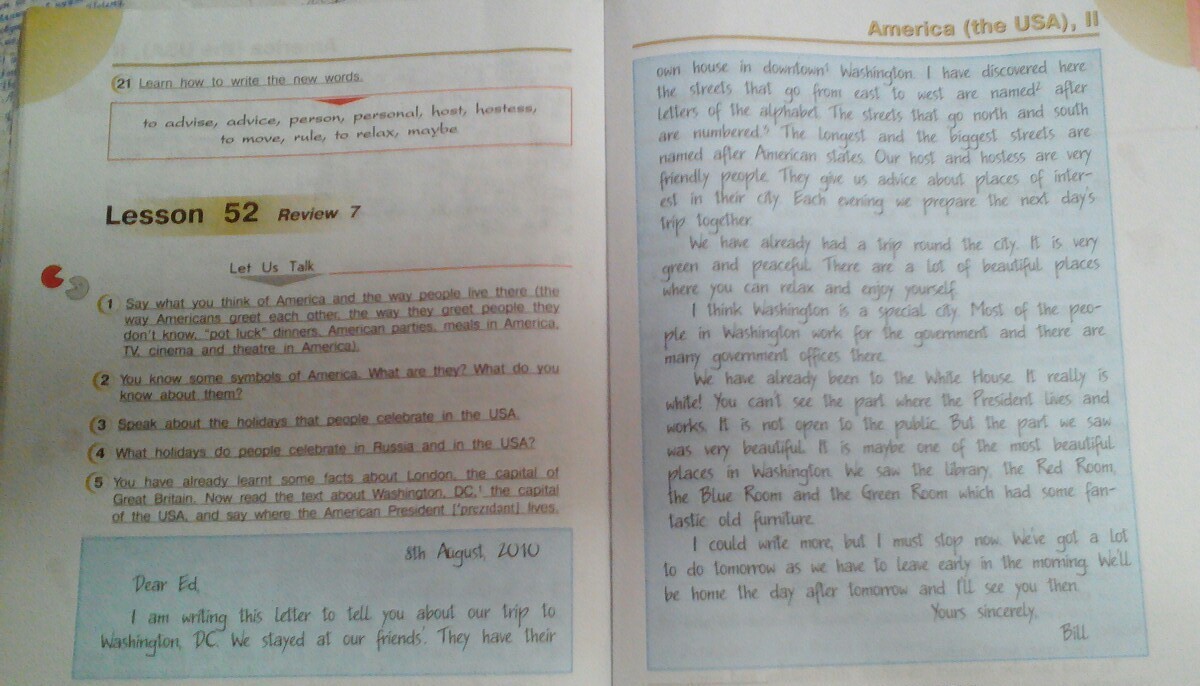 21 Learn how to write the new words.
to advise, advice, person, personal, host, hostess,
to move, rule, to relax, maybe
Lesson 52 Review 7
Let Us Talk
1 Say what you think of America and the way people live there (the
way Americans greet each other, the way they greet people they
don't know, "pot luck" dinners, American parties, meals in America,
TV, cinema and theatre in America).
2 You know some symbols of America. What are they? What do you
know about them?
3 Speak about the holidays that people celebrate in the USA.
4 What holidays do people celebrate in Russia and in the USA?
5 You have already learnt some facts about London, the capital of
Great Britain. Now read the text about Washington, DC,¹ the capital
of the USA, and say where the American President ['prezɪdənt] lives.
8th August, 2010
Dear Ed,
I am writing this letter to tell you about our trip to
Washington, DC. We stayed at our friends'. They have their
America (the USA), II
own house in downtown¹ Washington. I have discovered here
the streets that go from east to west are named² after
letters of the alphabet. The streets that go north and south
are numbered.³ The longest and the biggest streets are
named after American states. Our host and hostess are very
friendly people. They give us advice about places of inter-
est in their city. Each evening we prepare the next day's
trip together.
We have already had a trip round the city. It is very
green and peaceful. There are a lot of beautiful places
where you can relax and enjoy yourself.
I think Washington is a special city. Most of the peo-
ple in Washington work for the government and there are
many government offices there.
We have already been to the White House. It really is
white! You can't see the part where the President lives and
works. It is not open to the public. But the part we saw
was very beautiful. It is maybe one of the most beautiful
places in Washington. We saw the Library, the Red Room,
the Blue Room and the Green Room which had some fan-
tastic old furniture.
I could write more, but I must stop now. We've got a lot
to do tomorrow as we have to leave early in the morning. We'll
be home the day after tomorrow and I'll see you then.
Yours sincerely,
Bill